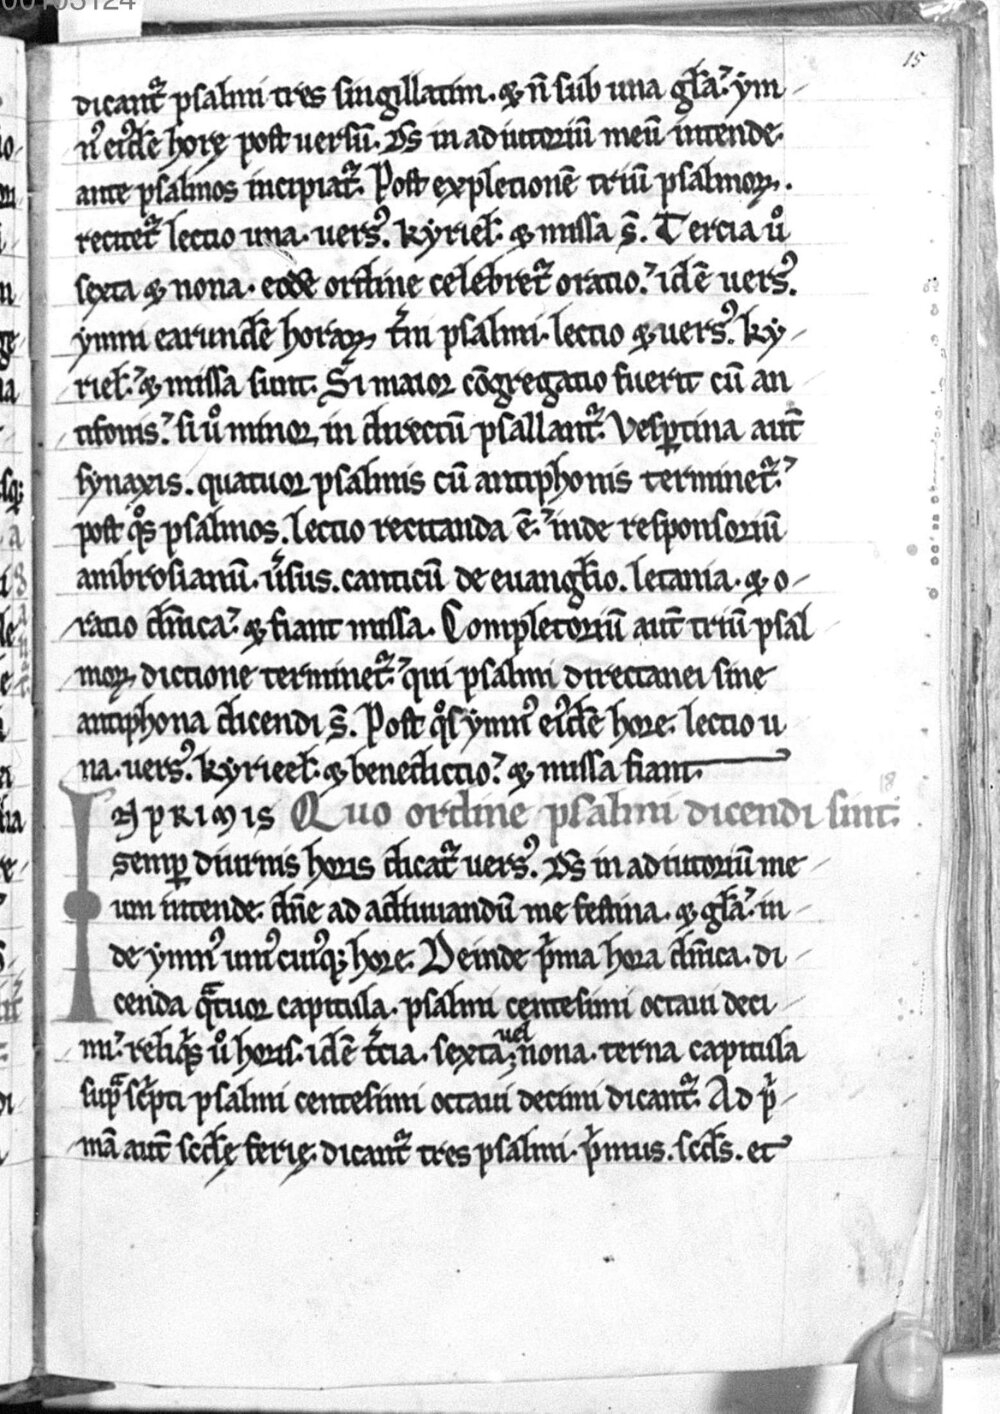 00103124
15
dicant᷑ psalmi tres singillatim. ⁊ n̄ sub una gl̄a. ym
n᷒ eiusdē hore post uersū. D̄s in adiutoriū meū intende.
ante psalmos incipiat᷑. Post expletionē triū psalmoꝝ.
recitet᷑ lectio una. uers᷒. kyriel̄. ⁊ missa s̄. Tercia ů
sexta ⁊ nona. eodē ordine celebret᷑ oratio. idē uers᷒.
ymni earundē horaꝝ t̄ni psalmi. lectio ⁊ uers᷒. ky
riel̄. ⁊ missa sunt. Si maior cōgregatio fuerit cū an
tifonis. si ů minor, in directū psallant᷑. Vesꝑtina aut̄
synaxis. quatuor psalmis cū antiphonis terminet᷑.
post q̊s psalmos. lectio recitanda ē. inde responsoriū
ambrosianū. u̅sus. canticū de euangl̄io. letania. ⁊ o
ratio dn̄ica. ⁊ fiant missa. Completoriū aut̄ triū psal
moꝝ dictione terminet᷑. qui psalmi directanei sine
antiphona dicendi s̄. Post q̊s ymn᷒ eiusdē hore. lectio u
na. uers᷒. kyrieel̄. ⁊ benedictio. ⁊ missa fiant.
18
INPRIMIS Quo ordine psalmi dicendi sint.
semꝑ diurnis horis dicat᷑ uers᷒. D̄s in adiutoriū me
um intende. dn̄e ad adiuuandū me festina. ⁊ gl̄a. in
de ymn᷒ uni᷒cuiusqꝫ hore. Deinde p̍ma hora dn̄ica. di
cenda qͣtuor capitula. psalmi centesimi octaui deci
mi. reliq̍s ů horis. idē t̄cia. sexta. uel nona. terna capitula
supͣsc̍pti psalmi centesimi octaui decimi dicant᷑. Ad p̍
mā aut̄ scd̄ę ferię. dicant᷑ tres psalmi. p̍mus. scd̄s. et